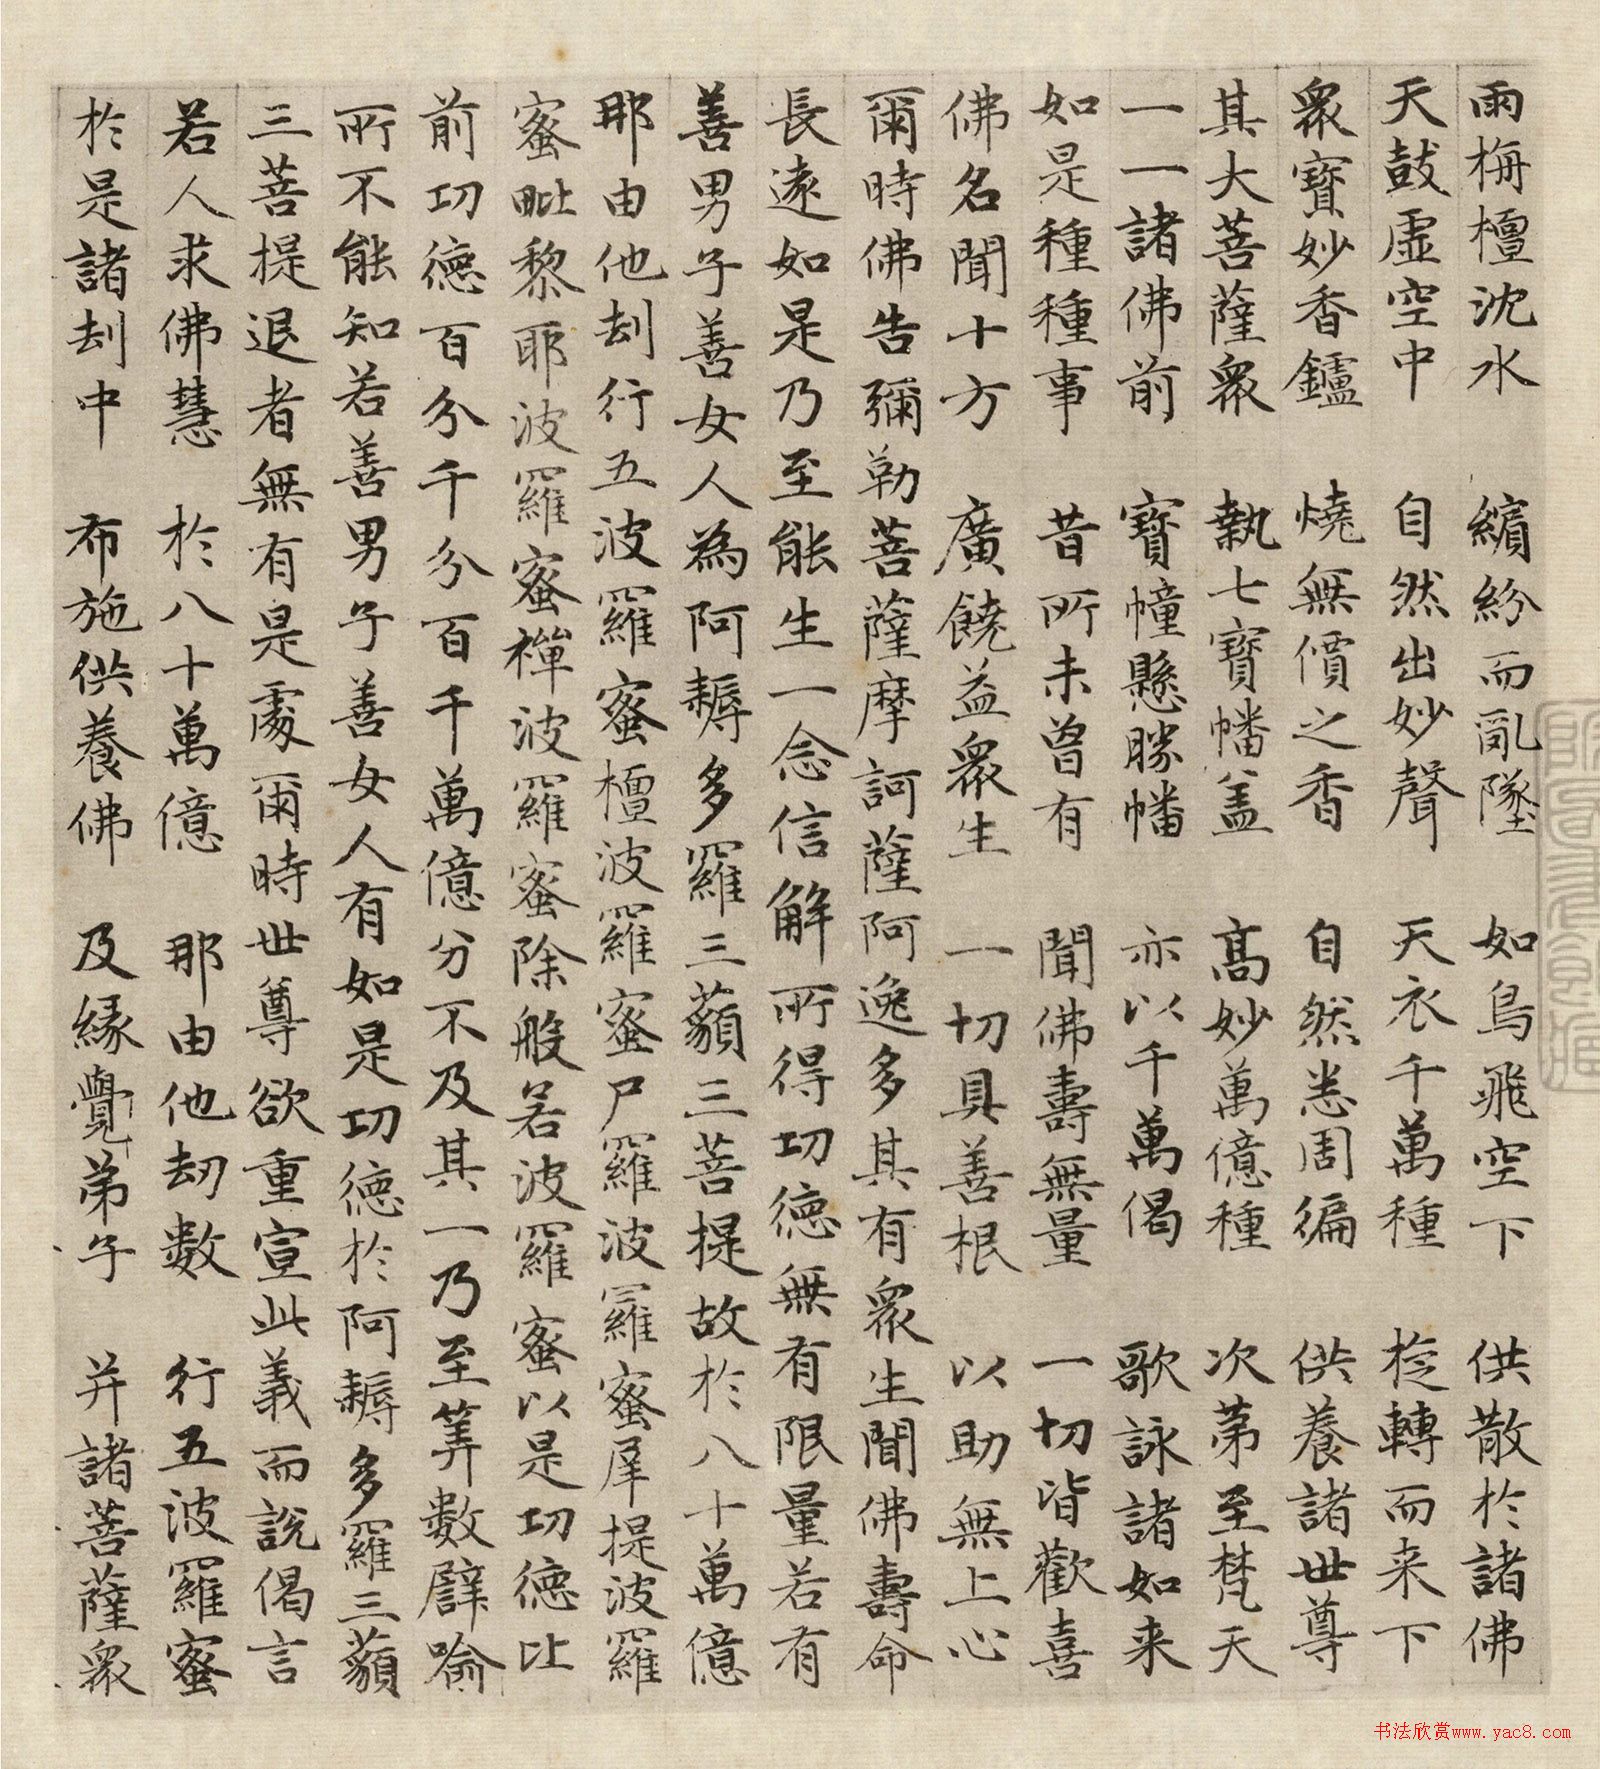 雨栴檀沈水　繽紛而亂墜　如鳥飛空下　供散於諸佛
天鼓虛空中　自然出妙聲　天衣千萬種　旋轉而来下
衆寶妙香鑪　燒無價之香　自然悉周徧　供養諸世尊
其大菩薩衆　執七寶幡盖　高妙萬億種　次第至梵天
一一諸佛前　寶幢懸勝幡　亦以千萬偈　歌詠諸如来
如是種種事　昔所未曾有　聞佛壽無量　一切皆歡喜
佛名聞十方　廣饒益衆生　一切具善根　以助無上心
爾時佛告彌勒菩薩摩訶薩阿逸多其有衆生聞佛壽命
長遠如是乃至能生一念信解所得功德無有限量若有
善男子善女人為阿耨多羅三藐三菩提故於八十萬億
那由他刦行五波羅蜜檀波羅蜜尸羅波羅蜜羼提波羅
蜜毗黎耶波羅蜜禪波羅蜜除般若波羅蜜以是功德比
前功德百分千分百千萬億分不及其一乃至筭數譬喻
所不能知若善男子善女人有如是功德於阿耨多羅三藐
三菩提退者無有是處爾時世尊欲重宣此義而說偈言
若人求佛慧　於八十萬億　那由他刼數　行五波羅蜜
於是諸刦中　布施供養佛　及緣覺弟子　并諸菩薩衆
书法欣赏www.yac8.com